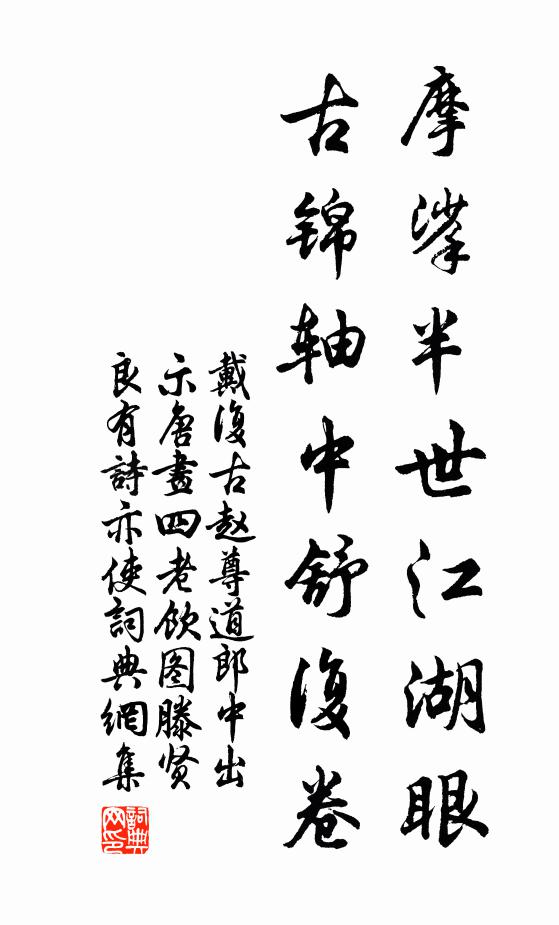 摩挲半世江湖眼
古锦轴中舒復卷
戴復古赵尊道郎中出
示唐畫四老饮图滕贤
良有詩亦使詞典網集
詞典网印